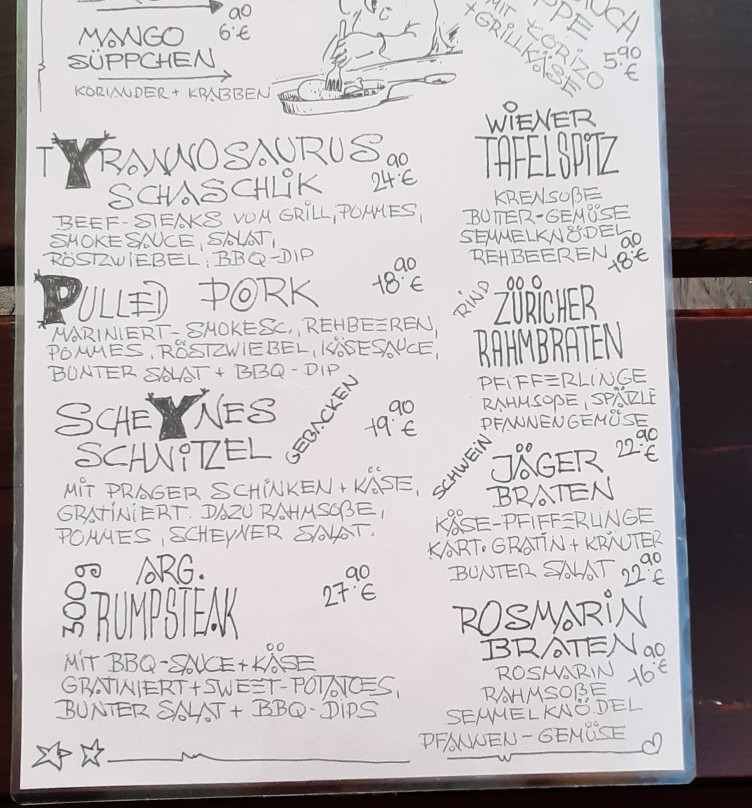 MANGO
SÜPPCHEN
6.90 €
KORIANDER + KRABBEN
MIT XORIZO
+ GRILLKÄSE
5.90 €
TYRANNOSAURUS
SCHASCHLIK
24.90 €
BEEF-STEAKS VOM GRILL, POMMES,
SMOKESAUCE, SALAT,
RÖSTZWIEBEL, BBQ-DIP
PULLED PORK
18.90 €
MARINIERT-SMOKESC., REHBEEREN,
POMMES, RÖSTZWIEBEL, KÄSESAUCE,
BUNTER SALAT + BBQ-DIP
SCHEYNES
SCHNITZEL
GEBACKEN
19.90 €
MIT PRAGER SCHINKEN + KÄSE,
GRATINIERT. DAZU RAHMSOßE,
POMMES, SCHEYNER SALAT.
300g
ARG.
RUMPSTEAK
27.90 €
MIT BBQ-SAUCE + KÄSE
GRATINIERT + SWEET-POTATOES,
BUNTER SALAT + BBQ-DIPS
WIENER
TAFELSPITZ
KRENSOßE
BUTTER-GEMÜSE
SEMMELKNÖDEL
REHBEEREN
18.90 €
RIND
ZÜRICHER
RAHMBRATEN
PFIFFERLINGE
RAHMSOßE, SPÄTZLE
PFANNENGEMÜSE
22.90 €
SCHWEIN
JÄGER
BRATEN
KÄSE-PFIFFERLINGE
KART. GRATIN + KRÄUTER
BUNTER SALAT
22.90 €
ROSMARIN
BRATEN
16.90 €
ROSMARIN
RAHMSOßE
SEMMELKNÖDEL
PFANNEN-GEMÜSE